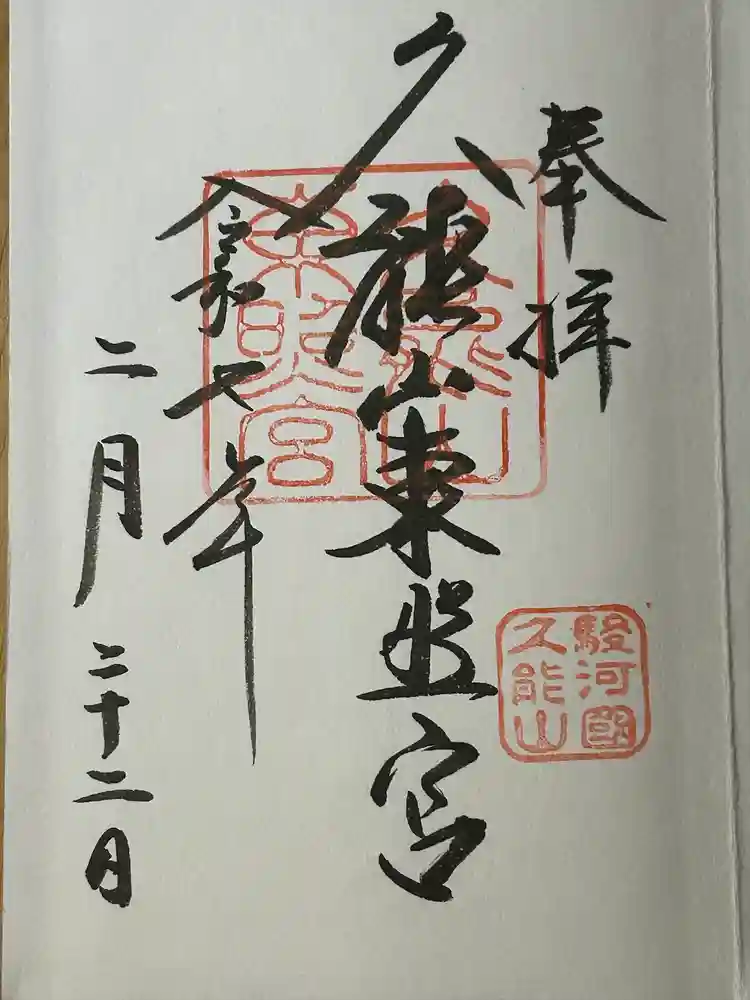 奉拝
久能山東照宮
令和七年
二月二十二日
久能山
東照宮
駿河國
久能山